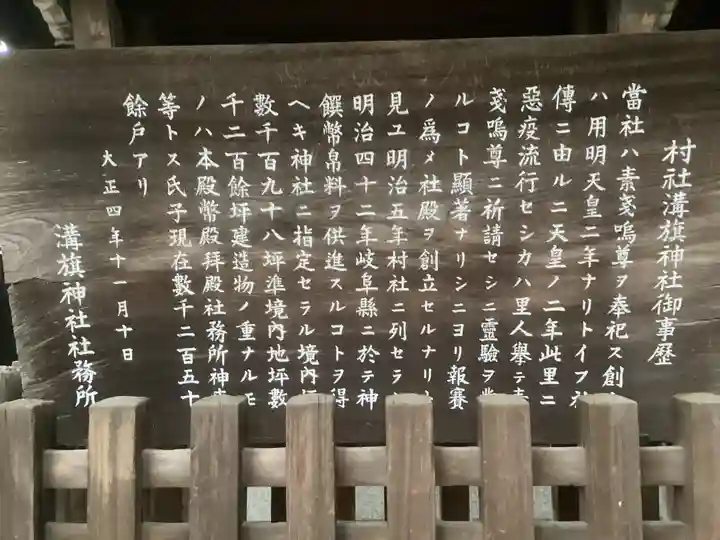 村社溝旗神社御事歴
當社ハ素戔嗚尊ヲ奉祀ス創
ハ用明天皇二年ナリトイフ社
傳ニ由ルニ天皇ノ二年此里ニ
惡疫流行セシカハ里人擧テ素
戔嗚尊ニ祈請セシニ靈驗ヲ
ルコト顯著ナリシニヨリ報賽
ノ爲メ社殿ヲ創立セルナリ
見ユ明治五年村社ニ列セラ
明治四十二年岐阜縣ニ於テ神
饌幣帛料ヲ供進スルコトヲ得
ヘキ神社ニ指定セラル境內
數千百九十八坪準境內地坪數
千二百餘坪建造物ノ重ナルモ
ノハ本殿幣殿拜殿社務所神
等トス氏子現在數千二百五十
餘戸アリ
大正四年十一月十日
溝旗神社社務所